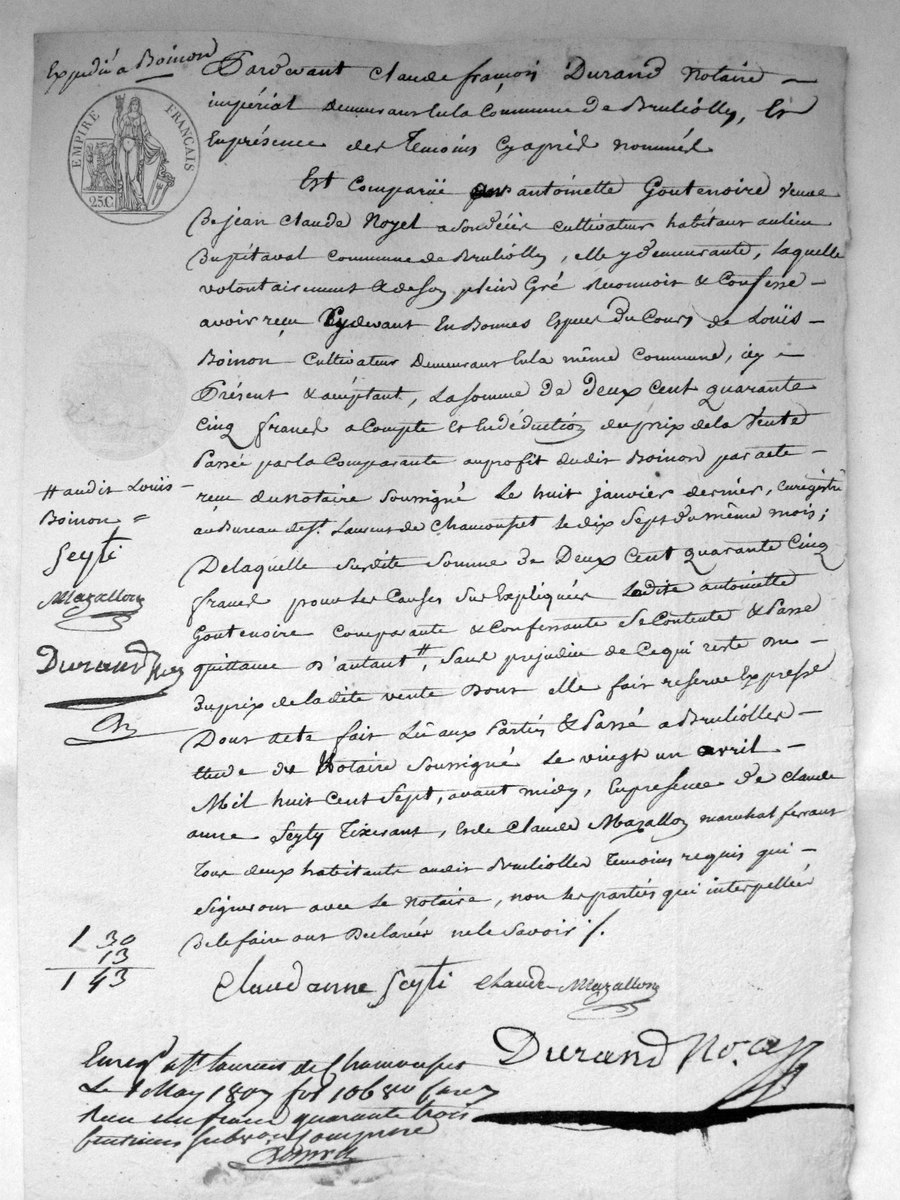 Expédié à Boinon
EMPIRE FRANÇAIS
25.C.
Pardevant Claude françois Durand Notaire
impérial demeurant en la Commune de Bruliolles, Et
En présence des Temoins Cyaprès nommés
Est Comparüe antoinette Goutenoire veuve
De jean Claude Noyel a Son décès cultivateur habitant au lieu
Du pitaval Commune de Brulliolles, elle y demeurante, Laquelle
volontairement & de Son plein Gré reconnoit & Confesse
avoir reçu Cydevant En Bonnes Espèces Du Cours de Loüis
Boinon Cultivateur Demeurant En la même Commune, icy
Présent & acceptant, La Somme De Deux Cent quarante
Cinq francs a Compte Et En déduction du prix de la Vente
Passée par la Comparante au profit dudit Boinon par acte
reçu du notaire Soussigné Le huit janvier dernier, enregistré
au Bureau de St. Laurent de Chamousset le dix Sept du même mois;
De laquelle Susdite Somme de Deux Cent quarante Cinq
francs pour les Causes Sus Expliquées Ladite antoinette
Goutenoire Comparante & Confessante Se Contente & Passe
quittance D'autant #, Sauf préjudice de Ce qui reste Du
Du prix de la dite vente Dont elle fait reserve Expresse
Dont acte fait Lû aux Parties & Passé a Brulliolles
Etude du Notaire Soussigné Le vingt un avril
Mil huit Cent Sept, avant midy, En présence de Claude
anne Seyty Tixerant, Et de Claude Mazallon marechal ferrant
Tous deux habitants audit Brulliolles Temoins requis qui
Signeront avec Le Notaire, non les parties qui interpellées
De le faire ont Déclarées ne le Savoir ./.
# audit Louïs
Boinon =
Seyti
Mazallon
Durand
1 30
13
1 43
Claudanne Seyti Claude Mazallon
Durand No.re
Enreg. à St. Laurent de Chamousset
Le 1 May 1807 fol 106
Reçu un franc quarante trois
centimes subvon comprise